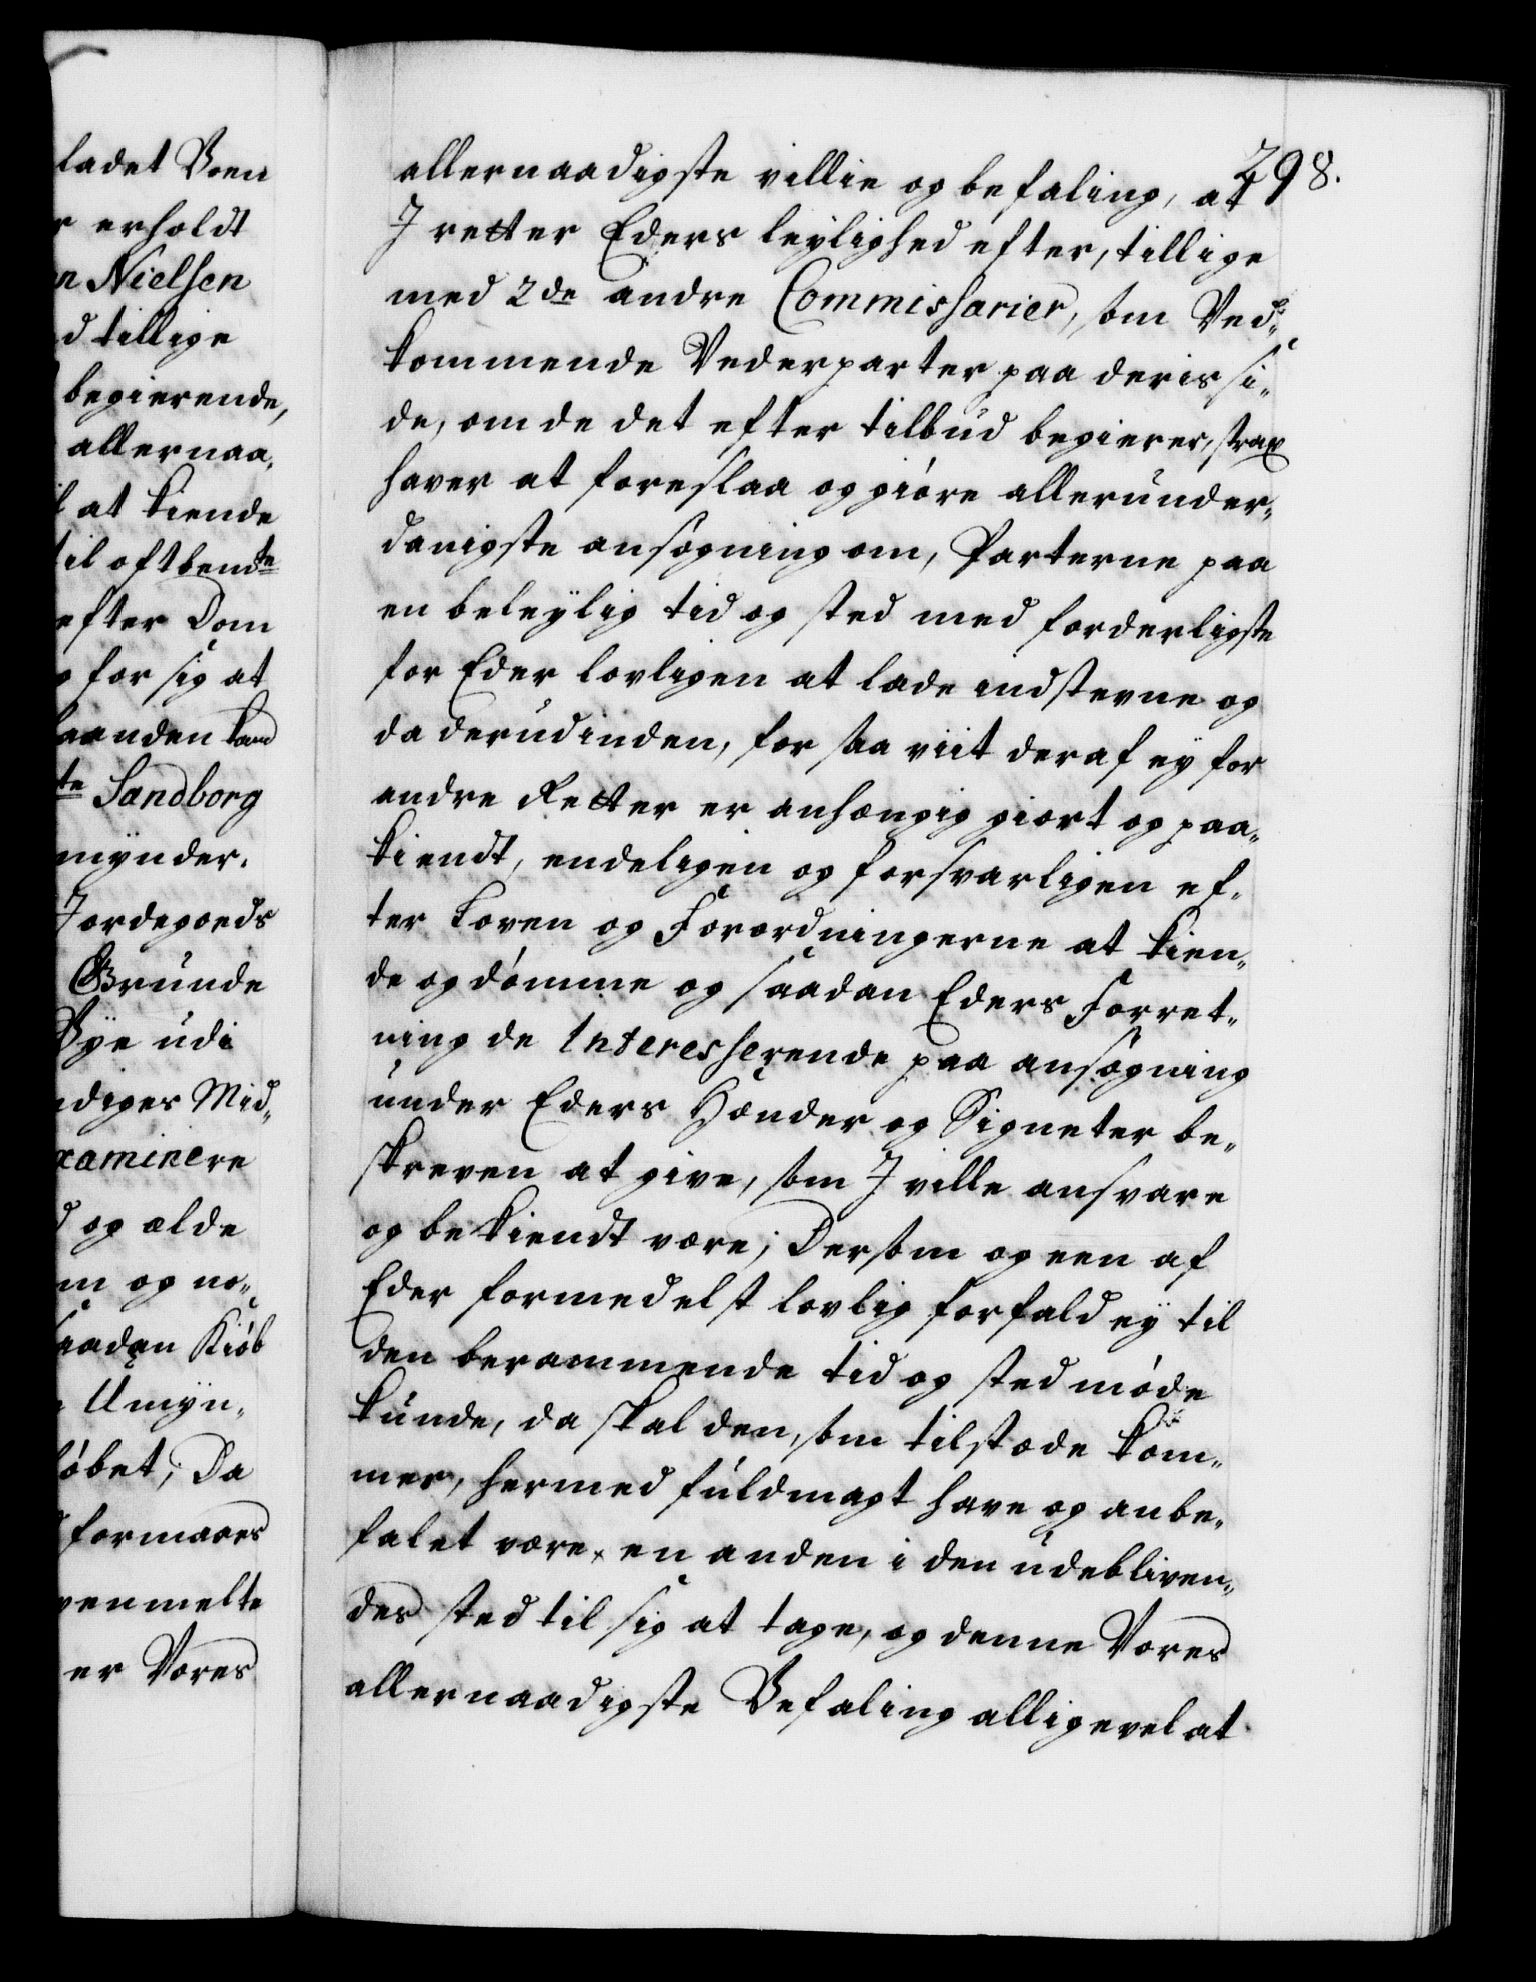 ladet Voen
r erholdt
n Nielsen
d tillige
begierende,
allernaa,
l at kiende
til oftbemte
efter Dom
g for sig at
aanden kand
te Sandborg
mynder,
Jordegoeds
Grunde
Bye udi
ndiges Mid,,
xaminere
d og ælde
m og no,,
saadan Kiöb
Umyn,
löbet, Da
formaaes
venmelte
er Vores
298.
allernaadigste villie og befaling, at
J retter Eders leylighed efter, tillige
med 2de andre Commissarier, som Ved,,
kommende Vederparter paa deris si,,
de, om de det efter tilbud begierer, strax
haver at foreslaa og giöre allerunder,,
danigste ansøgning om, Parterne paa
en beleylig tid og sted med forderligste
for Eder lovligen at lade indstevne og
da derudinden, for saa viit deraf ey for
andre Retter er anhængig giort og paa,,
kiendt, endeligen og forsvarligen ef,
ter Loven og Forordningerne at kien,,
de og dömme og saadan Eders Forret,,
ning de Interesserende paa ansøgning
under Eders Hænder og Signeter be,,
skreven at give, som J ville ansvare
og bekiendt være; Dersom og een af
Eder formedelst lovlig forfald ey til
den berammende tid og sted möde
kunde, da skal den, som tilstæde kom,,
mer, hermed fuldmagt have og anbe,,
falet være en anden i den udebliven,,
des sted til sig at tage, og denne Vores
allernaadigste Befaling alligevel at